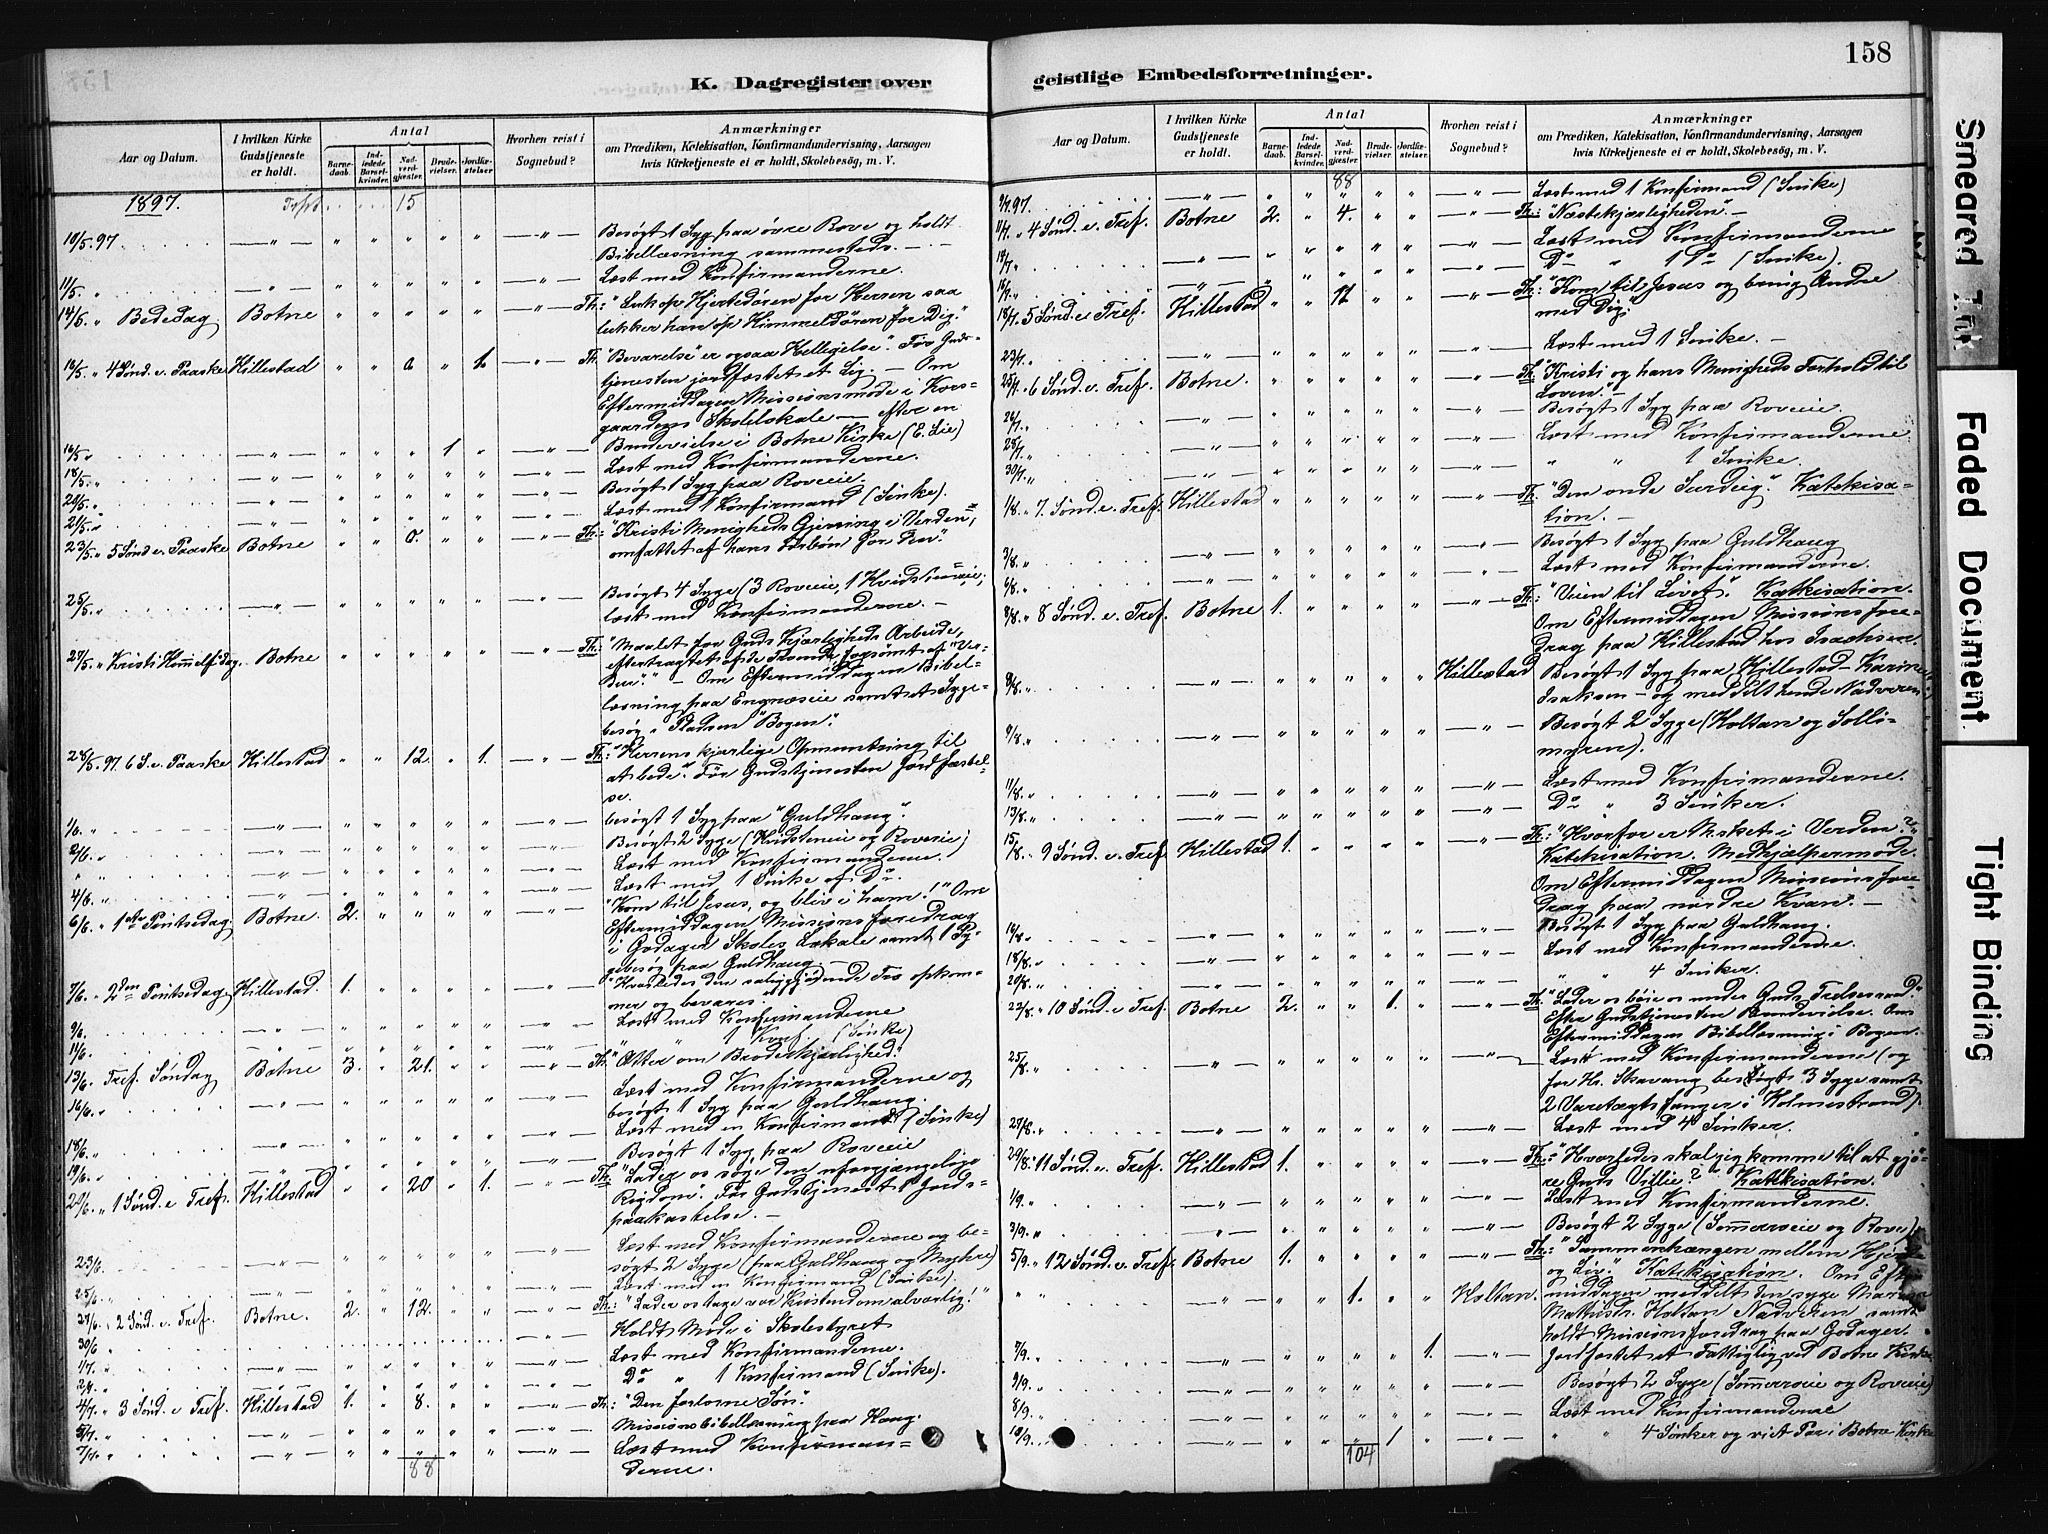 K. Dagregister over
Aar og Datum.
I hvilken Kirke Gudstjeneste er holdt.
Antal
Barnedaab.
Indledede Barselkvinder.
Nadverdgjester.
Brudevielser.
Jordfæstelser
Hvorhen reist i Sognebud?
Anmærkninger
om Prædiken, Katekisation, Konfirmandundervisning, Aarsagen
hvis Kirketjeneste ei er holdt, Skolebesög, m. V.
1897. Trpt. 15
10/5 97 Besøgt 1 Syg paa øvre Rove og holdt
Bibellæsning sammesteds. —
11/5 Læst med Konfirmanderne.
14/5 " Bededag Botne Th: "Luk op Hjertedören for Herren saa
lukker han op Himmeldören for Dig."
16/5 " 4 Sönd. e. Paaske Hillestad 1. Th: "Bevarelse" er ogsaa Helligelse". Før Guds-
tjenesten jordfæstet et Lig. — Om
Eftermiddagen Missionsmøde i Kors-
gaardens Skolelokale — efter en
16/5 " 1 Brudevielse i Botne Kirke (E. Lie)
18/5 " Læst med Konfirmanderne.
20/5 " Besøgt 1 Syg paa Roveeie.
21/5 " Læst med 1 Konfirmand (Sinke).
23/5 " 5 Sönd e. Paaske Botne 0. Th: "Kristi Menigheds Gjerning i Verden",
omfattet af hans Forbøn for den".
25/5 " Besøgt 4 Syge (3 Roveeie, 1 Hvidsteneie;
læst med Konfirmanderne. —
27/5 " Kristi Himmelf. dag Botne Th: "Maalet for Guds Kjærligheds Arbeide,
eftertragtet af de Fromme, forsømt af "Ver-
den"." — Om Eftermiddagen Bibel-
læsning paa Engnæseie samt et Syge-
besøg " Pladsen "Bogen".
28/5 97. 6 S. e. Paaske Hillestad 12. 1. Th: "Herrens kjærlige Opmuntring til
at bede". Før Gudstjenesten Jordfæstel-
se.
1/6 " besøgt 1 Syg paa "Guldhaug".
2/6 " Besøgt 2 Syge (Hvidsteneie og Roveeie)
" " Læst med Konfirmanderne.
4/6 " Læst med 1 Sinke af Do.
6/6 " 1ste Pintsedag Botne. 2. "Kom til Jesus, og bliv i ham!" Om
Eftermiddagen Missionsforedrag
i Godager Skoles Lokale samt 1 Sy-
gebesøg paa Guldhaug. —
7/6 " 2den Pintsedag Hillestad. 1. "Hvorledes den saliggjørende Tro opkom-
mer og bevares".
9/6 Læst med Konfirmanderne
11/6 " " 1 Konf. (Sinke)
13/6 " Tref. Søndag Botne 3. 21. Th: "Atter om Broderkjærlighed."
16/6 " Læst med Konfirmanderne og
besøgt 1 Syg paa Guldhaug.
18/6 " Læst med en Konfirmand (Sinke)
19/6 " Besøgt 1 Syg paa Roveeie
20/6 " 1 Sönd. e Tref. Hillestad 20 1. Th: "Lader os søge den uforgjængelige
Rigdom". Før Gudstjenest 1 Jords-
paakastelse. —
23/6 Læst med Konfirmanderne og be-
søgt 2 Syge (paa Guldhaug og Myhre)
25/6 " Læst med en Konfirmand (Sinke).
27/6 " 2 Sönd. e. Tref. Botne. 2. 12. Th: "Lader os tage vor Kristendom alvorlig!"
30/6 " Holdt Møde i Skolestyret
1/7 " Læst med Konfirmanderne.
2/7 " Do " 1 Konfirmand (Sinke).
4/7 " 3 Sönd. e Tref. Hillestad 1. 8. Th: "Den fortorne Søn".
5/7 " Missionsbibellæsning paa Haug.
7/7 " Læst med Konfirman-
derne.
88

geistlige Embedsforretninger.
158
Aar og Datum.
I hvilken Kirke Gudstjeneste er holdt.
Antal
Barnedaab.
Indledede Barselkvinder.
Nadverdgjester.
Brudevielser.
Jordfæstelser.
Hvorhen reist i Sognebud?
Anmærkninger
om Prædiken, Katekisation, Konfirmandundervisning, Aarsagen
hvis Kirketjeneste ei er holdt, Skolebesög, m. V.
88
9/7 97. Læst med 1 Konfirmand (Sinke)
11/7 " 4 Sönd. e. Tref. Botne 2. 4. Th: "Næstekjærligheden". —
14/7 " Læst med Konfirmanderne
16/7 " Do " 1 Do (Sinke).
18/7 " 5 Sönd. e Tref. Hillestad 12 Th: "Kom til Jesus og bring Andre
med Dig."
23/7 " Læst med 1 Sinke. —
25/7 " 6 Sönd. e. Tref. Botne. Th: "Kristi og hans Menigheds Forhold til
Loven". —
26/7 " Besøgt 1 Syg paa Roveeie.
28/7 " Læst med Konfirmanderne
30/7 " " " 1 Sinke.
1/8 " 7. Sönd. e. Tref. Hillestad Th: "Den onde Surdeig." Katekisa-
tion. —
3/8 " Besøgt 1 Syg paa Guldhaug
6/8 " Læst med Konfirmanderne.
8/8 " 8 Sönd. e. Tref. Botne 1. Th: "Veien til Livet". Katkisation.
Om Eftermiddagen Missionsfore-
drag paa Hillestad hos Isachsen.
8/8 " Hillestad Besøgt 1 Syg paa Hillestad — Karine
Isaksen — og meddelt hende Nadveren
9/8 " Besøgt 2 Syge (Holtan og Solli-
myren).
11/8 " Læst med Konfirmanderne.
13/8 " Do " 3 Sinker.
15/8 " 9 Sönd. e. Tref. Hillestad 1. Th: "Hvorfor er Mesket i Verden?"
Katekisation. Medhjælpermøde.
Om Eftermiddagen Missionsfore-
drag paa nordre Kvan. —
16/8 " Besøgt 1 Syg paa Guldhaug.
18/8 " Læst med Konfirmanderne.
20/8 " " " 4 Sinker.
22/8 " 10 Sönd. e. Tref. Botne 2. 1. Th: "Lader os bøie os under Guds Frelsesraad."
Efter Gudstjenesten Brudevielse. Om
Eftermiddagen Bibellæsning i Bogen.
25/8 " Læst med Konfirmanderne (og
for Hr. Skavang besøgt 3 Syge samt
2 Varetægtsfanger i Holmestrand).
27/8 " Læst med 4 Sinker.
29/8 " 11 Sönd. e. Tref. Hillestad 1. Th: "Hvorledes skal jeg komme til at gjø-
re Guds Villie?" Katekisation.
1/9 " Læst med Konfirmanderne.
3/9 " Besøgt 2 Syge (Sommeroeie og Rove)
5/9 " 12 Sönd. e. Tref. Botne 1. Th: "Sammenhængen mellem Hjerte
og Liv." Katekisation. Om Efter-
" " 1. Holtan. middagen meddelt den syge
Mathisdr. Holtan Nadveren samt
holdt Missionsforedrag paa Godager.
7/9 " 1. Jordfæstet et Fattiglig ved Botne Kirke
9/9 " Besøgt 2 Syge (Sommeroeie og Roveeie)
8/9 " Læst med Konfirmanderne
10/9 " 1 " " 4 Sinker og viet 1 Par i Botne Kirke
104
Smeared Ink
Faded Document
Tight Binding